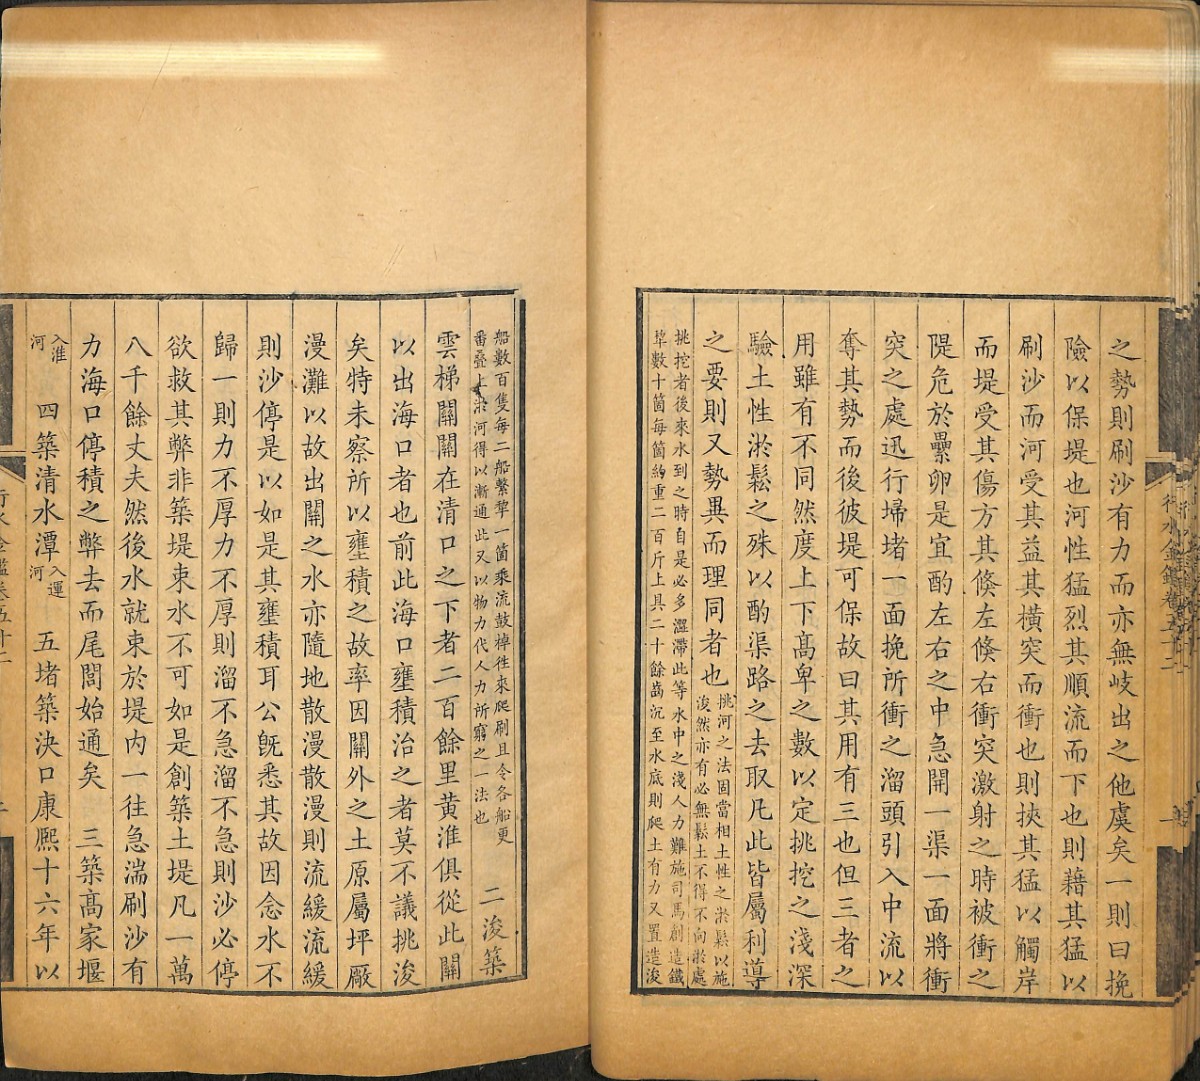 之勢則刷沙有力而亦無岐出之他虞矣一則曰挽
險以保堤也河性猛烈其順流而下也則藉其猛以
刷沙而河受其益其橫突而衝也則挾其猛以觸岸
而堤受其傷方其倏左倏右衝突激射之時被衝之
隄危於纍卵是宜酌左右之中急開一渠一面將衝
突之處迅行埽堵一面挽所衝之溜頭引入中流以
奪其勢而後彼堤可保故曰其用有三也但三者之
用雖有不同然度上下高卑之數以定挑挖之淺深
驗土性淤鬆之殊以酌渠路之去取凡此皆屬利導
之要則又勢異而理同者也
挑河之法固當相土性之淤鬆以施
浚然亦有必無鬆土不得不向淤處
挑挖者後來水到之時自是必多澀滯此等水中之淺人力難施司馬創造鐵
犂數十箇每箇約重二百斤上具二十餘齒沉至水底則爬土有力又置造浚
船數百隻每二船繫犂一箇乘流鼓棹往來爬刷且令各船更
番疊上淤河得以漸通此又以物力代人力所窮之一法也
二浚築
雲梯關關在清口之下者二百餘里黃淮俱從此關
以出海口者也前此海口壅積治之者莫不議挑浚
矣特未察所以壅積之故率因關外之土原屬坪廠
漫灘以故出關之水亦隨地散漫散漫則流緩流緩
則沙停是以如是其壅積耳公既悉其故因念水不
歸一則力不厚力不厚則溜不急溜不急則沙必停
欲救其弊非築堤束水不可如是創築土堤凡一萬
八千餘丈夫然後水就束於堤內一往急湍刷沙有
力海口停積之弊去而尾閭始通矣　三築高家堰
入淮
河
四築清水潭
入運
河
五堵築決口康熙十六年以
行水金鑑卷五十二